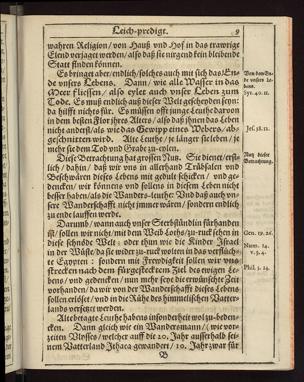 Leich-predigt. 9
wahren Religion/ von Hauß und Hof in das trawrige
Elend verjaget werden/ also daß sie nirgend kein bleibende
Statt finden können.
Es bringet aber/ endlich/ solches auch mit sich das Ende
unsers Lebens. Dann/ wie alle Wasser in das
Meer fliessen/ also eylet auch unser Leben zum
Tode. Es muß endlich auß dieser Welt gescheyden seyn:
da hilfft nichts für. Es müssen offt junge Leuthe davon
in dem besten Flor ihres Alters/ also daß jhnen das Leben
nicht anderst/ als wie das Gewipp eines Webers/ abgeschnitten
wird. Alte Leuthe/ je länger sie leben/ je
mehr sie dem Tod und Grabe zu-eylen.
Diese Betrachtung hat grossen Nutz. Sie dienet/ erstlich/
dahin/ daß wir uns in allerhand Trübsalen und
Beschwärden dieses Lebens mit gedult schicken/ und gedencken/
wir können und sollens in diesem Leben nicht
besser haben/ als die Wanders-leuthe: Und daß auch unsere
Wanderschafft nicht immer wären/ sondern endlich
zu ende lauffen werde.
Darumb/ wann auch unser Sterbstündlin fürhanden
ist/ sollen wir nicht/ mit dem Weib Loths/ zu-ruck sehen in
diese schnöde Welt; oder thun wie die Kinder Israel
in der Wüste/ da sie wider zu-ruck wolten in das versuchte
Egypten: sondern mit Frewdigkeit sollen wir uns
strecken nach dem fürgesteckten Ziel des ewigen Lebens/
und gedencken/ nun mehr seye die erwünschte Zeit
vorhanden/ da wir von der Wanderschafft dieses Lebens
sollen erlöset/ und in die Ruhe des himmelischen Vatterlands
versetzet werden.
Alte betagte Leuthe haben es insonderheit wol zu bedencken.
Dann gleich wie ein Wandersmann/ (wie vorzeiten
Ulysses/ welcher auff die 20. Jahr ausserhalb
seinem Vatterland Ithaca gewandert/ 10. Jahr zwar für
B
Von dem Ende
unsers Lebens.
Syr. 40. 11.
Jes. 38. 12.
Nutz dieser
Betrachtung.
Gen. 19. 26.
Num. 14.
v. 3. 4.
Phil. 3. 14.